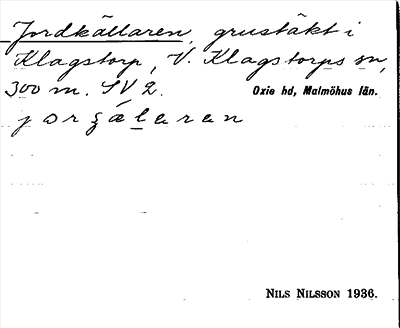 Jordkällaren, grustäkt i
Klagstorp, V. Klagstorps sn,
300 m. SV 2. Oxie hd, Malmöhus län.
NILS NILSSON 1936.